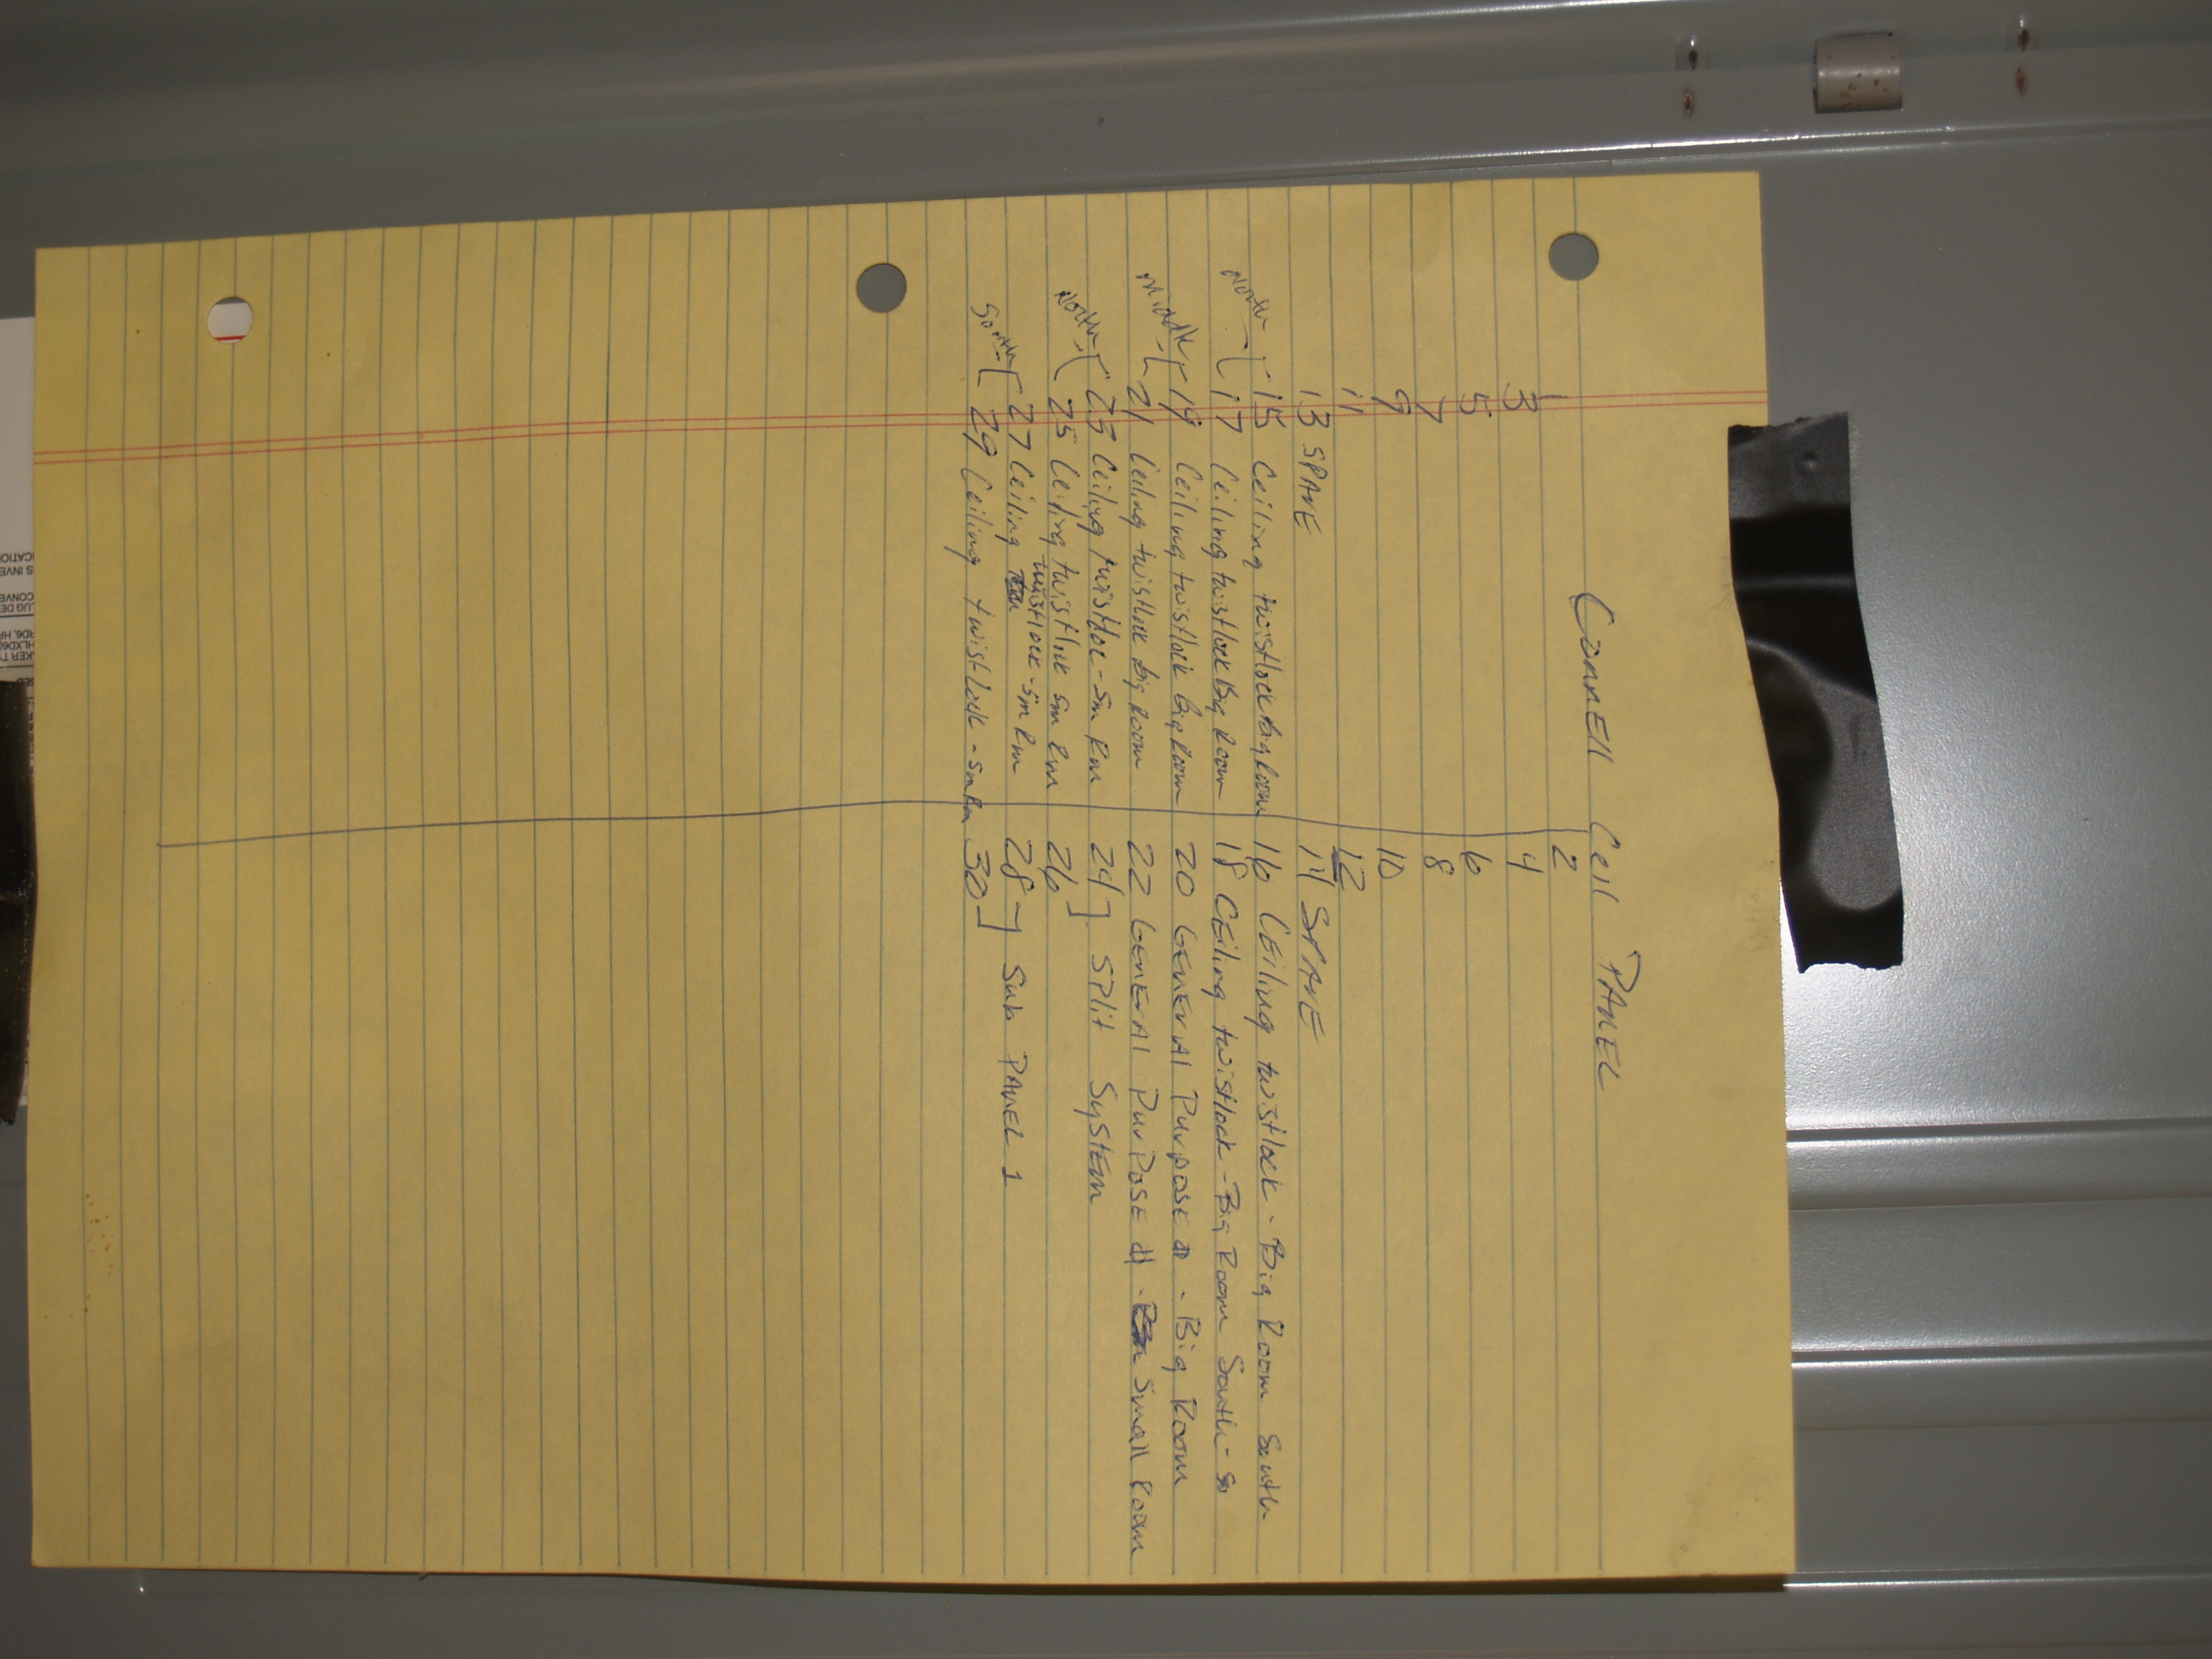 CornEll CEll PANEL
1 2
3 4
5 6
7 8
9 10
11 12
13 SPARE 14 SPARE
North 15 Ceiling twistlock Big Room 16 CEiling twistlock - Big Room South
17 Ceiling twistlock Big Room 18 CEiling twistlock - Big Room South -
Middle 19 Ceiling twistlock Big Room 20 GENErAl PurposE - Big Room
21 Ceiling twistlock Big Room 22 GENErAl PurPosE - Small Room
North 23 Ceiling twistloc - Sm Rm 24 ] SPlit SyStEm
25 Ceiling twistlock Sm Rm 26
South 27 Ceiling twistlock - Sm Rm 28 ] Sub PANEL 1
29 Ceiling twistlock - Sm Rm 30